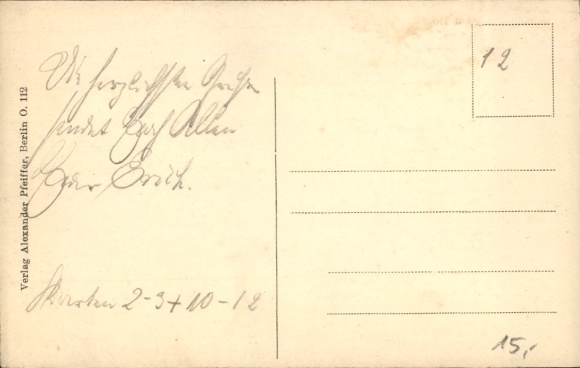 Die herzlichsten Grüße
sendet Euch Allen
Euer Erich.
Karten 2-3+10-12
12
15,-
Verlag Alexander Pfeiffer, Berlin O. 112